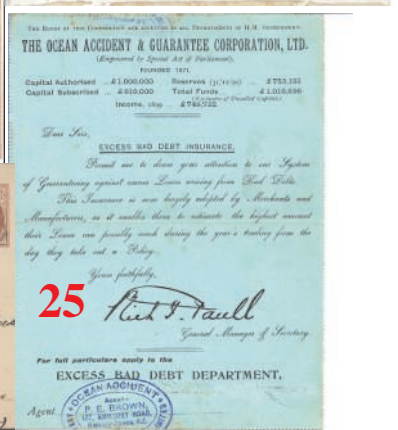 THE BONDS OF THIS CORPORATION ARE ACCEPTED BY ALL DEPARTMENTS OF H.M. GOVERNMENT.
THE OCEAN ACCIDENT & GUARANTEE CORPORATION, LTD.
(Empowered by Special Act of Parliament).
FOUNDED 1871.
Capital Authorised ... £1,000,000 Reserves (31/12/99) ... £753,135
Capital Subscribed ... £
Total Funds ...
Income, 1899
Dear Sirs,
EXCESS BAD DEBT INSURANCE.
Permit me to draw your attention to our System
of Guaranteeing against excess Losses arising from Bad Debts.
This Insurance is now largely adopted by Merchants and
Manufacturers, as it enables them to estimate the highest amount
their Losses can possibly reach during the year's trading from the
day they take out a Policy.
Yours faithfully,
25
Richd J. Paull
General Manager & Secretary.
For full particulars apply to the
EXCESS BAD DEBT DEPARTMENT.
Agent
OCEAN ACCIDENT
P. E. BROWN,
ROAD,